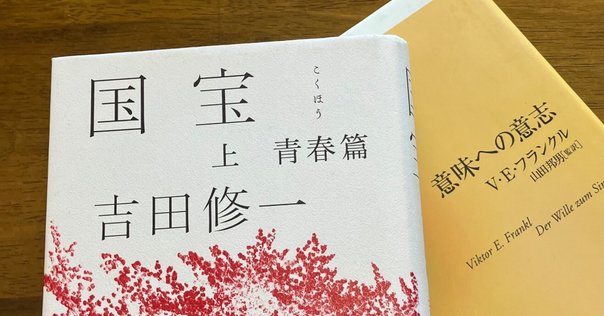 国宝
こくほう
上 青春篇
吉田修一
意味への意志
V・E・フランクル
山田邦男[監訳]
Viktor E. Frankl Der Wille zum Sin